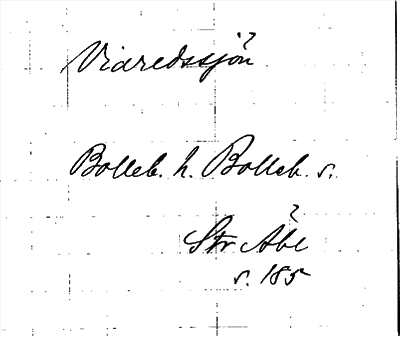 Viaredssjön
Bolleb. h. Bolleb. s.
Str Åbe
s. 185